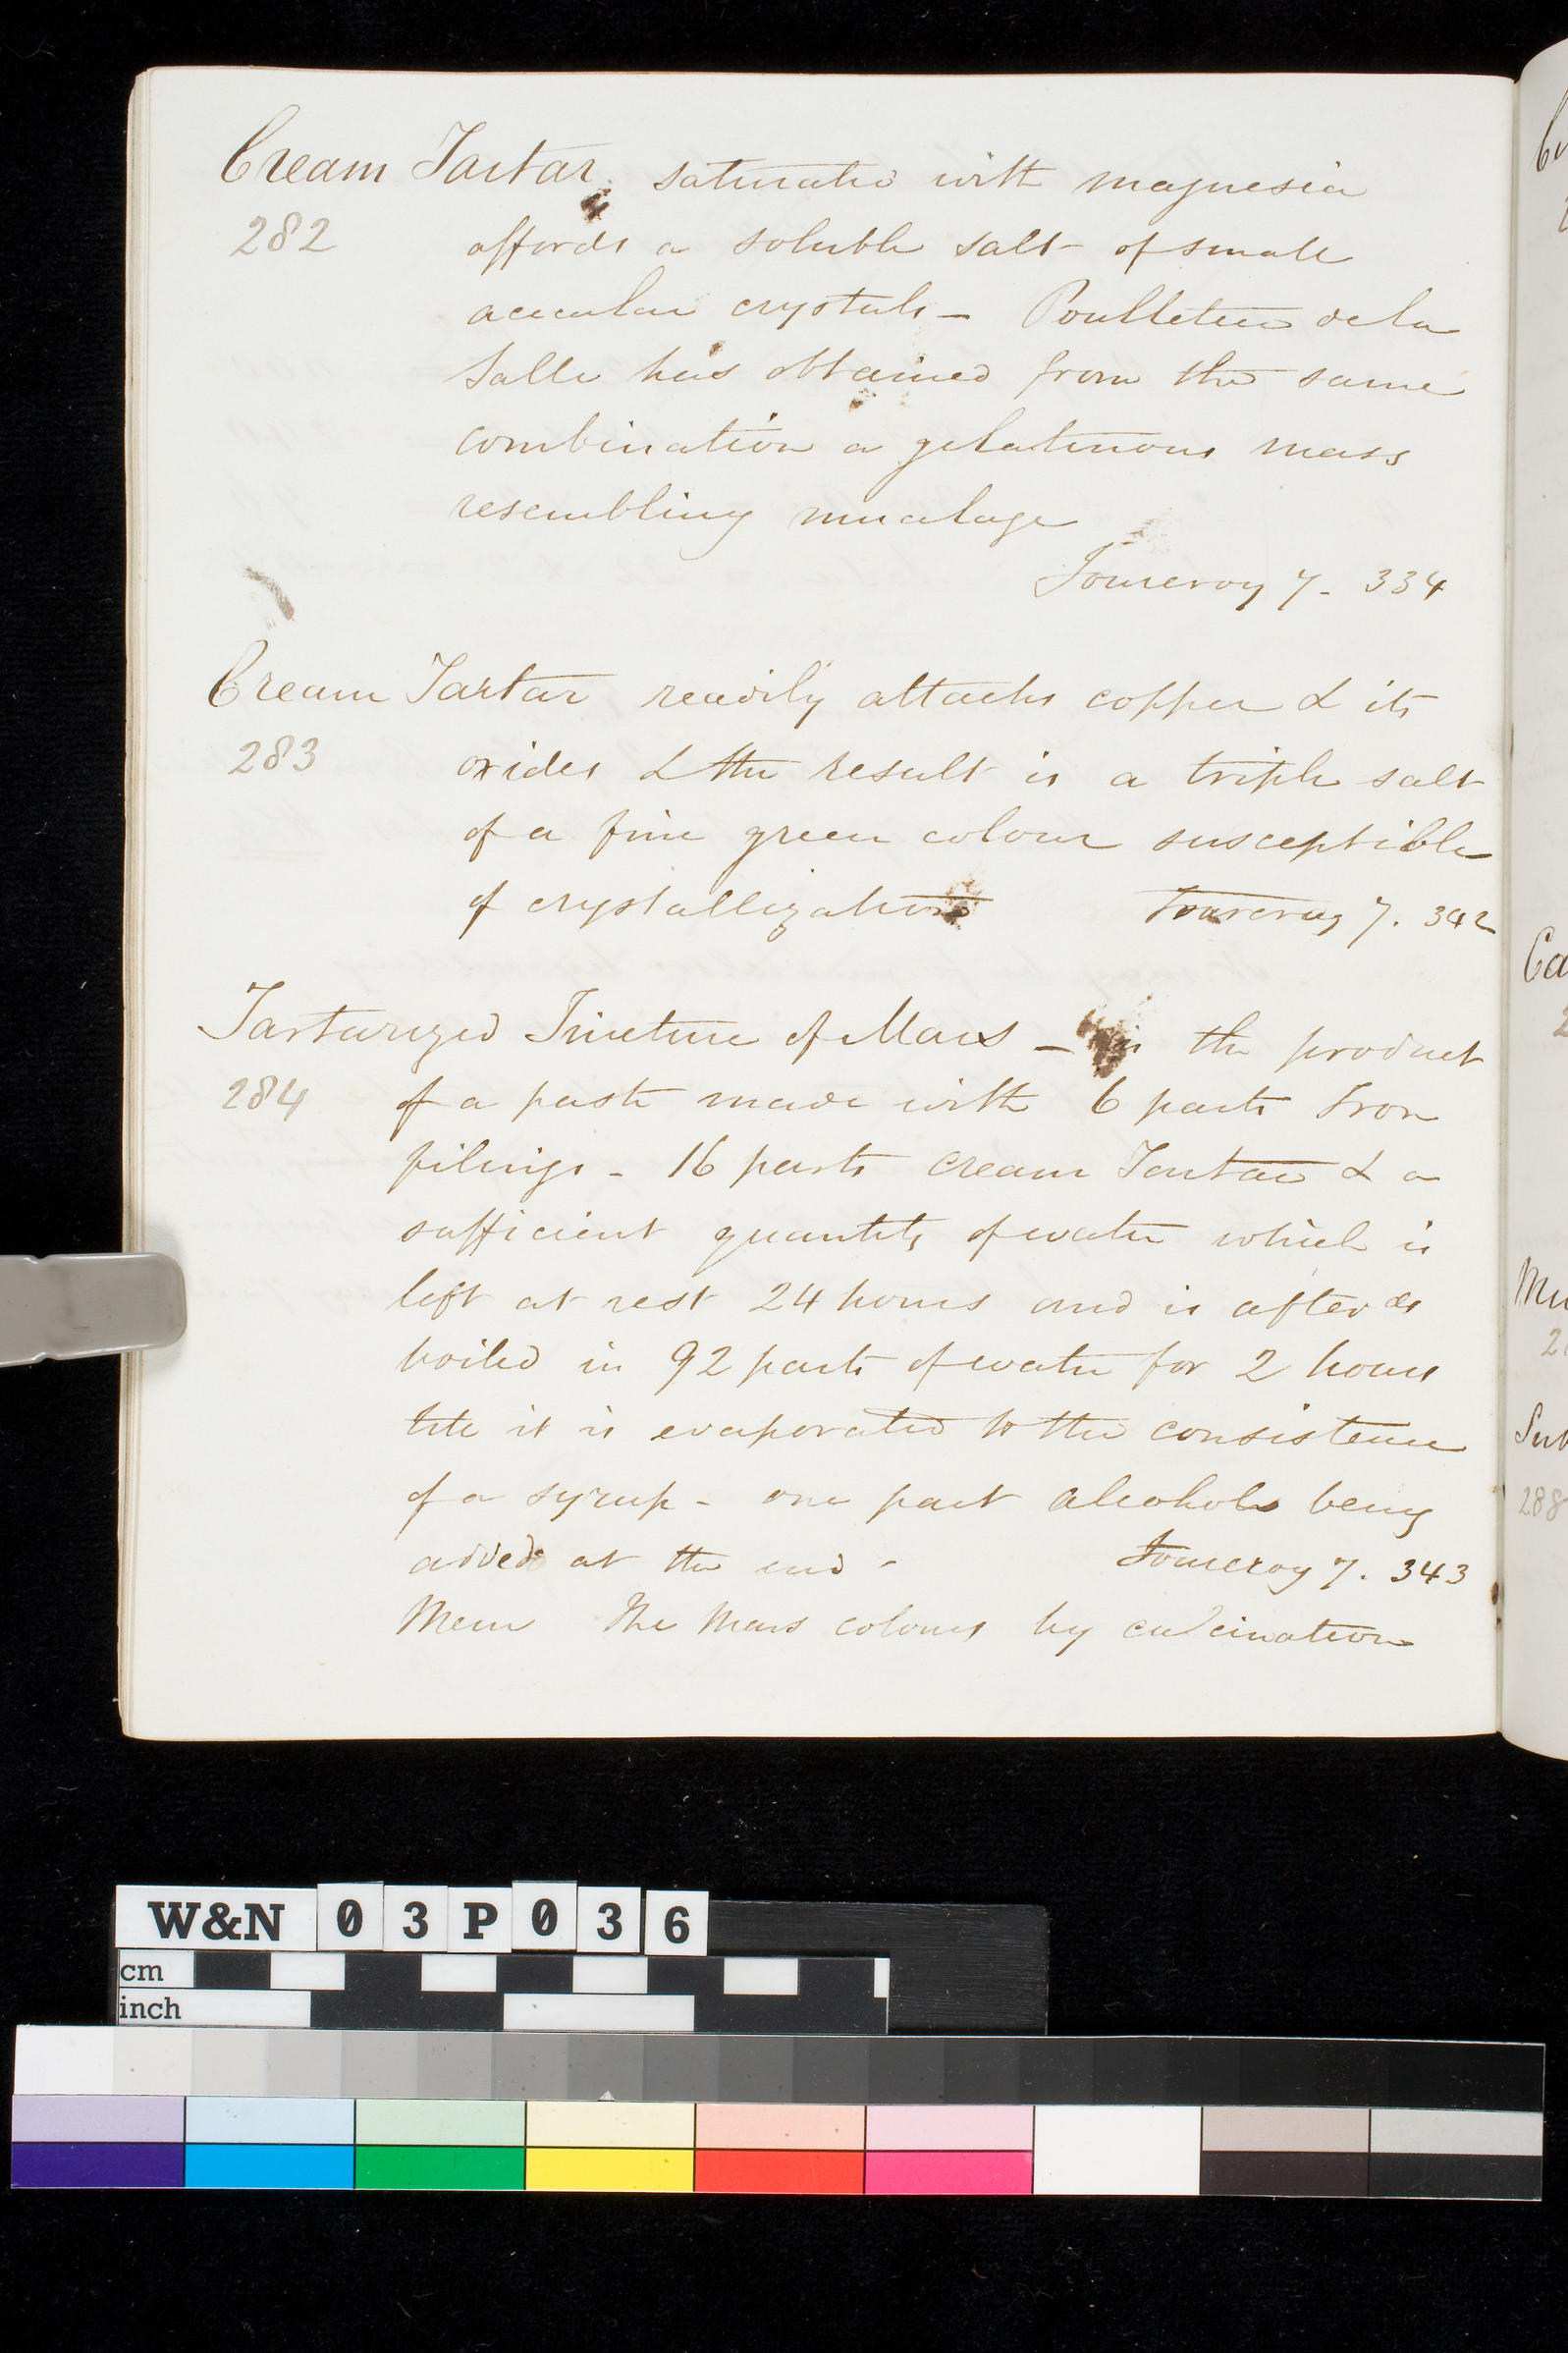 Cream Tartar. saturated with magnesia
282 affords a soluble salt of small
acicular crystals - Poulleteer de la
Salle has obtained from the same
combination a gelatinous mass
resembling mucilage
Fourcroy 7 - 334
Cream Tartar readily attacks copper & its
283 oxides & the result is a triple salt
of a fine green colour susceptible
of crystallization Fourcroy 7. 342
Tartarized Tincture of Mars - is the product
284 of a paste made with 6 parts Iron
filings - 16 parts cream Tartar & a
sufficient quantity of water which is
left at rest 24 hours and is afterds
boiled in 92 parts of water for 2 hours
till it is evaporated to the consistence
of a syrup - one part alcohol being
added at the end - Fourcroy 7. 343
Mem The Mars colours by calcination
Ca
Mu
Sub
288
W&N 03P036
cm
inch